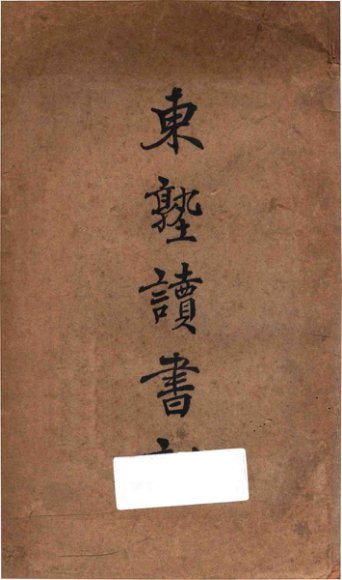 東塾讀書